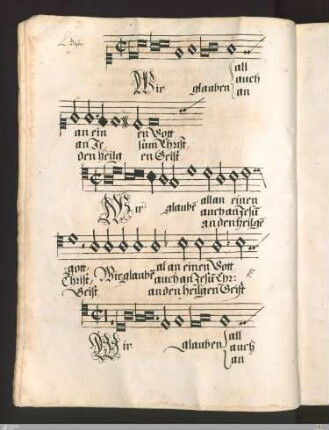 all
Wir glauben auch
an
an ein en Gott
an Je sum Christ
den heilig en Geist
all an einen
Wir glaubē auch an Jesū
an den heilge
gott al an einen Gott
Christ Wir glaubē auch an Jesū Chr:
Geist an den heiligen Geist
all
Wir glauben auch
an